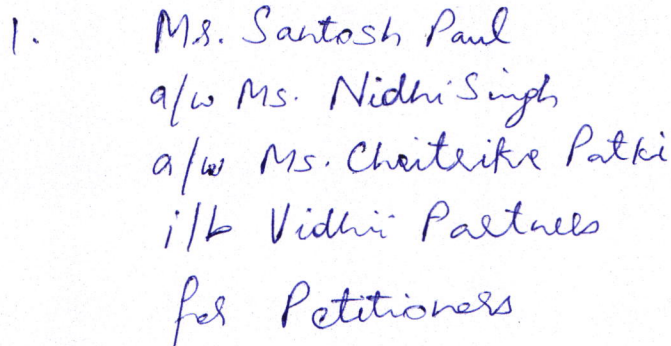 1. Mr. Santosh Paul
a/w Ms. Nidhi Singh
a/w Ms. Chaitrika Patki
i/b Vidhii Partners
for Petitioners